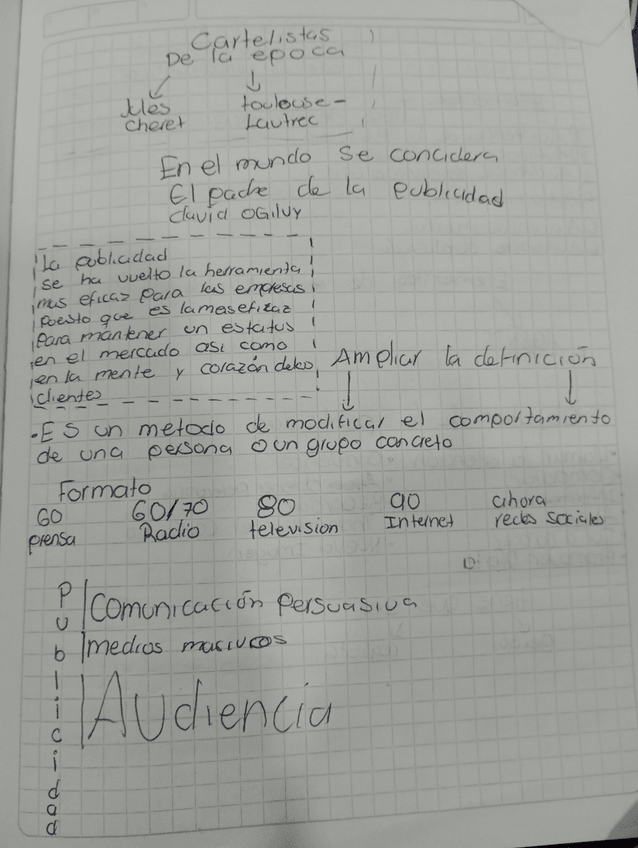 Cartelistas
De la epoca
Jules
cheret
toulouse-
Lautrec
En el mundo se concidera
El padre de la publicidad
david OGilvy
La publicidad
se ha vuelto la herramienta
mas eficaz para las empresas
puesto que es la mas efizaz
para mantener un estatus
en el mercado asi como
en la mente y corazón delos
clientes
Ampliar la definición
.ES un metodo de modificar el comportamiento
de una persona o un grupo concreto
Formato
60 60/70 80 90 ahora
prensa Radio television Internet redes sociales
Publicidad
Comunicación persuasiva
medios masivos
Audiencia